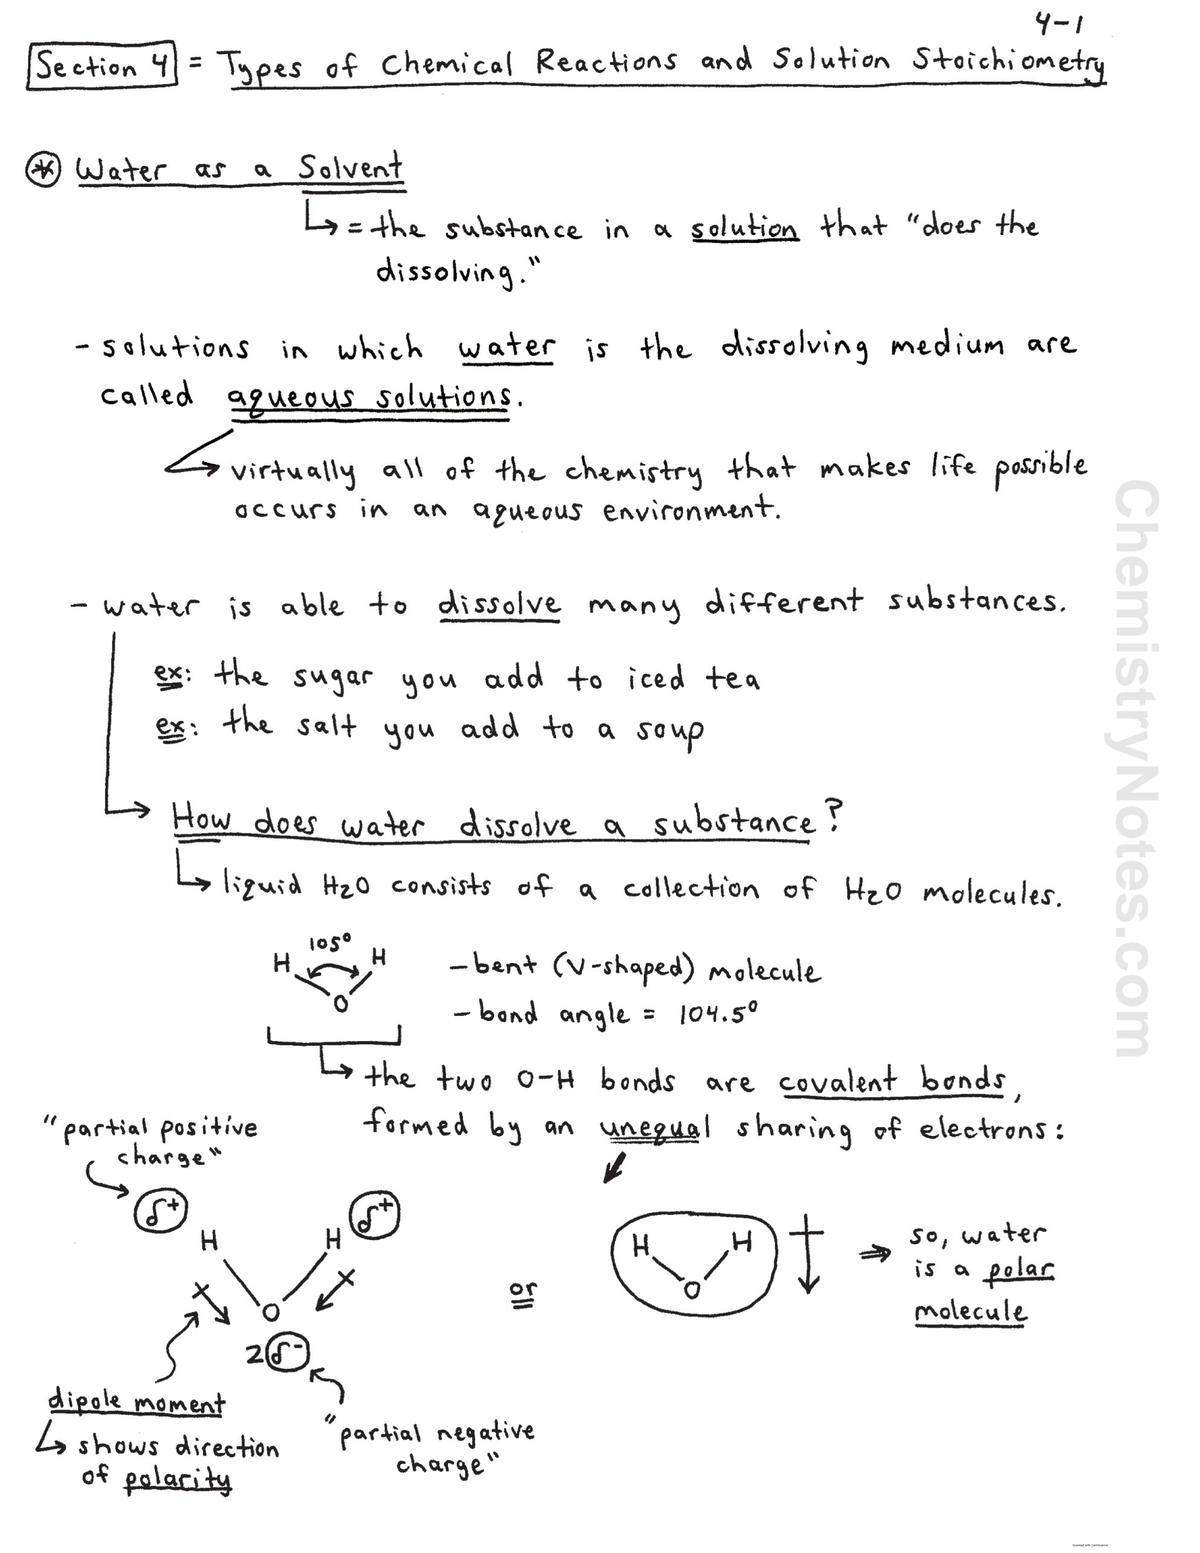 4-1
Section 4 = Types of Chemical Reactions and Solution Stoichiometry
* Water as a Solvent
↳ = the substance in a solution that "does the
dissolving."
- solutions in which water is the dissolving medium are
called aqueous solutions.
→ virtually all of the chemistry that makes life possible
occurs in an aqueous environment.
- water is able to dissolve many different substances.
ex: the sugar you add to iced tea
ex: the salt you add to a soup
→ How does water dissolve a substance?
↳ liquid H2O consists of a collection of H2O molecules.
105°
H H
O
- bent (V-shaped) molecule
- bond angle = 104.5°
↳ the two O-H bonds are covalent bonds,
formed by an unequal sharing of electrons:
"partial positive
charge"
δ+ δ+
H H
O
2δ-
or
H H
O
⇒ so, water
is a polar
molecule
dipole moment
↳ shows direction
of polarity
"partial negative
charge"
ChemistryNotes.com